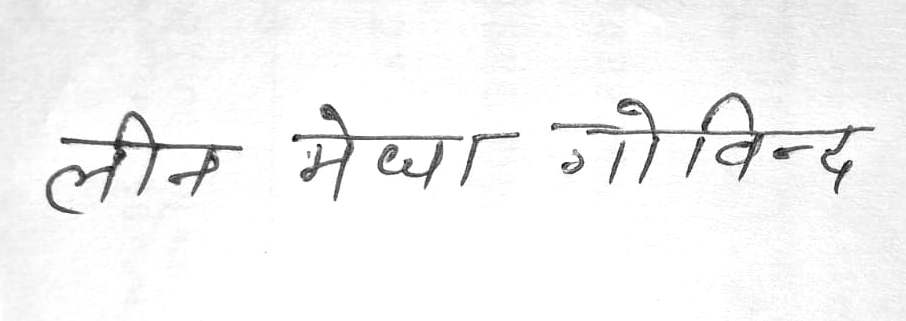 लीन मेधा गोविन्द